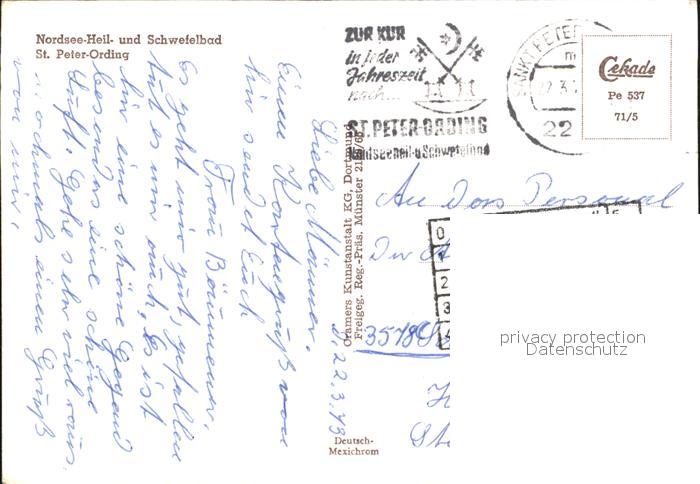 Nordsee-Heil- und Schwefelbad
St. Peter-Ording
ZUR KUR
in jeder
Jahreszeit
nach...
ST. PETER-ORDING
Nordseeheil-u Schwefelbad
SANKT PETER
22
Cekade
Pe 537
71/5
Liebe Männer.
Einen Kartengruß von
hir sendet Euch
Frau Bäumener,
Es geht mir gut, gefallen
tut es mir auch. Es ist
hir eine schöne Gegend
besonders eine schöne
Luft. Gehe sehr viel raus.
nochmals einen Gruß
von mir.
22.3.73
Cramers Kunstanstalt KG, Dortmund
Freigeg. Reg.-Präs. Münster
Deutsch-
Mexichrom
An Das Personal
Der
3578
0
2
3
privacy protection
Datenschutz